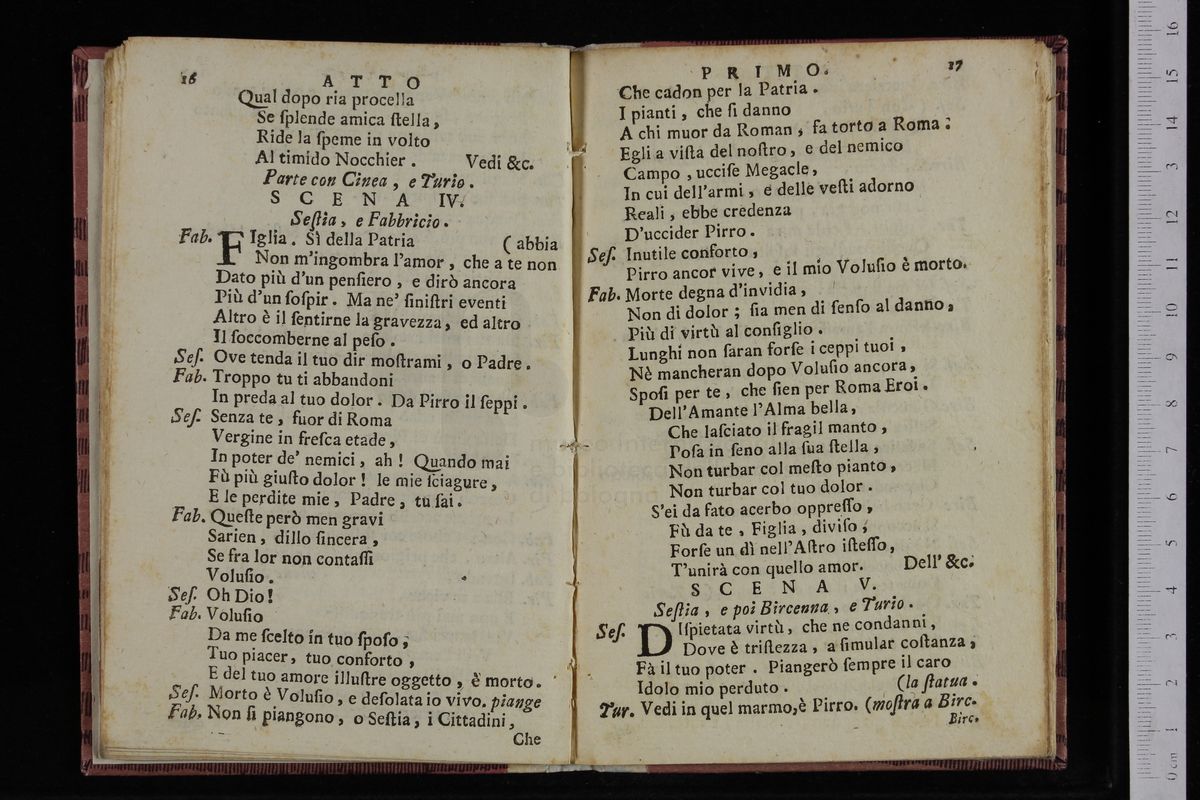 16
ATTO
Qual dopo ria procella
Se ſplende amica ſtella,
Ride la ſpeme in volto
Al timido Nocchier. Vedi &c.
Parte con Cinea, e Turio.
SCENA IV.
Seſtia, e Fabbricio.
Fab. FIglia. Sì della Patria (abbia
Non m'ingombra l'amor, che a te non
Dato più d'un penſiero, e dirò ancora
Più d'un ſoſpir. Ma ne' ſiniſtri eventi
Altro è il ſentirne la gravezza, ed altro
Il ſoccomberne al peſo.
Seſ. Ove tenda il tuo dir moſtrami, o Padre.
Fab. Troppo tu ti abbandoni
In preda al tuo dolor. Da Pirro il ſeppi.
Seſ. Senza te, fuor di Roma
Vergine in freſca etade,
In poter de' nemici, ah! Quando mai
Fù più giuſto dolor! le mie ſciagure,
E le perdite mie, Padre, tu ſai.
Fab. Queſte però men gravi
Sarien, dillo ſincera,
Se fra lor non contaſſi
Voluſio.
Seſ. Oh Dio!
Fab. Voluſio
Da me ſcelto in tuo ſpoſo,
Tuo piacer, tuo conforto,
E del tuo amore illuſtre oggetto, è morto.
Seſ. Morto è Voluſio, e deſolata io vivo. piange
Fab. Non ſi piangono, o Seſtia, i Cittadini,
Che
PRIMO. 17
Che cadon per la Patria.
I pianti, che ſi danno
A chi muor da Roman, fa torto a Roma:
Egli a viſta del noſtro, e del nemico
Campo, ucciſe Megacle,
In cui dell'armi, e delle veſti adorno
Reali, ebbe credenza
D'uccider Pirro.
Seſ. Inutile conforto,
Pirro ancor vive, e il mio Voluſio è morto.
Fab. Morte degna d'invidia,
Non di dolor; ſia men di ſenſo al danno,
Più di virtù al conſiglio.
Lunghi non ſaran forſe i ceppi tuoi,
Nè mancheran dopo Voluſio ancora,
Spoſi per te, che ſien per Roma Eroi.
Dell'Amante l'Alma bella,
Che laſciato il fragil manto,
Poſa in ſeno alla ſua ſtella,
Non turbar col meſto pianto,
Non turbar col tuo dolor.
S'ei da fato acerbo oppreſſo,
Fù da te, Figlia, diviſo,
Forſe un dì nell'Aſtro iſteſſo,
T'unirà con quello amor. Dell' &c.
SCENA V.
Seſtia, e poi Bircenna, e Turio.
Seſ. DIſpietata virtù, che ne condanni,
Dove è triſtezza, a ſimular coſtanza,
Fà il tuo poter. Piangerò ſempre il caro
Idolo mio perduto. (la ſtatua.
Tur. Vedi in quel marmo, è Pirro. (moſtra a Birc.
Birc.